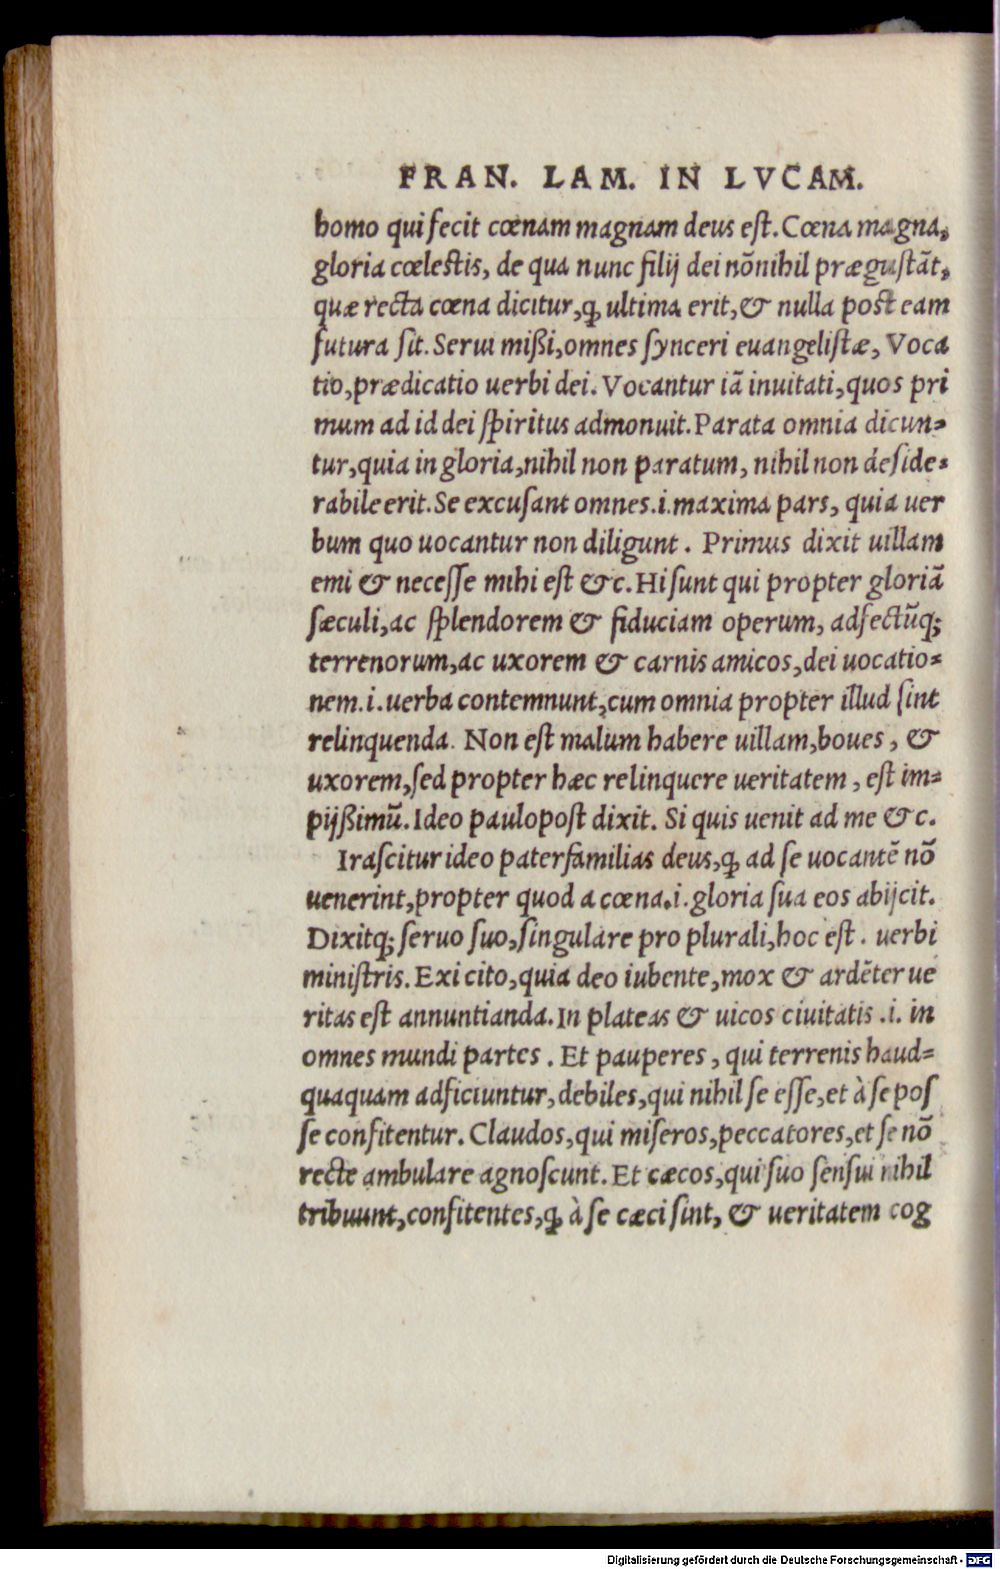 FRAN. LAM. IN LVCAM.
homo qui fecit cœnam magnam deus est. Cœna magna,
gloria cœlestis, de qua nunc filij dei nōnihil prægustāt,
quæ recta cœna dicitur, ꝙ ultima erit, & nulla post eam
futura sit. Serui mißi, omnes synceri euangelistæ, Voca
tio, prædicatio uerbi dei. Vocantur iā inuitati, quos pri
mum ad id dei spiritus admonuit. Parata omnia dicun-
tur, quia in gloria, nihil non paratum, nihil non deside-
rabile erit. Se excusant omnes .i. maxima pars, quia uer
bum quo uocantur non diligunt. Primus dixit uillam
emi & necesse mihi est &c. Hi sunt qui propter gloriā
sæculi, ac splendorem & fiduciam operum, adfectūq;
terrenorum, ac uxorem & carnis amicos, dei uocatio-
nem .i. uerba contemnunt, cum omnia propter illud sint
relinquenda. Non est malum habere uillam, boues, &
uxorem, sed propter hæc relinquere ueritatem, est im-
pijßimū. Ideo paulopost dixit. Si quis uenit ad me &c.
Irascitur ideo paterfamilias deus, ꝙ ad se uocantē nō
uenerint, propter quod a cœna .i. gloria sua eos abijcit.
Dixitq; seruo suo, singulare pro plurali, hoc est. uerbi
ministris. Exi cito, quia deo iubente, mox & ardēter ue
ritas est annuntianda. In plateas & uicos ciuitatis .i. in
omnes mundi partes. Et pauperes, qui terrenis haud-
quaquam adficiuntur, debiles, qui nihil se esse, et à se pos
se confitentur. Claudos, qui miseros, peccatores, et se nō
recte ambulare agnoscunt. Et cæcos, qui suo sensui nihil
tribuunt, confitentes, ꝙ à se cæci sint, & ueritatem cog
Digitalisierung gefördert durch die Deutsche Forschungsgemeinschaft - DFG